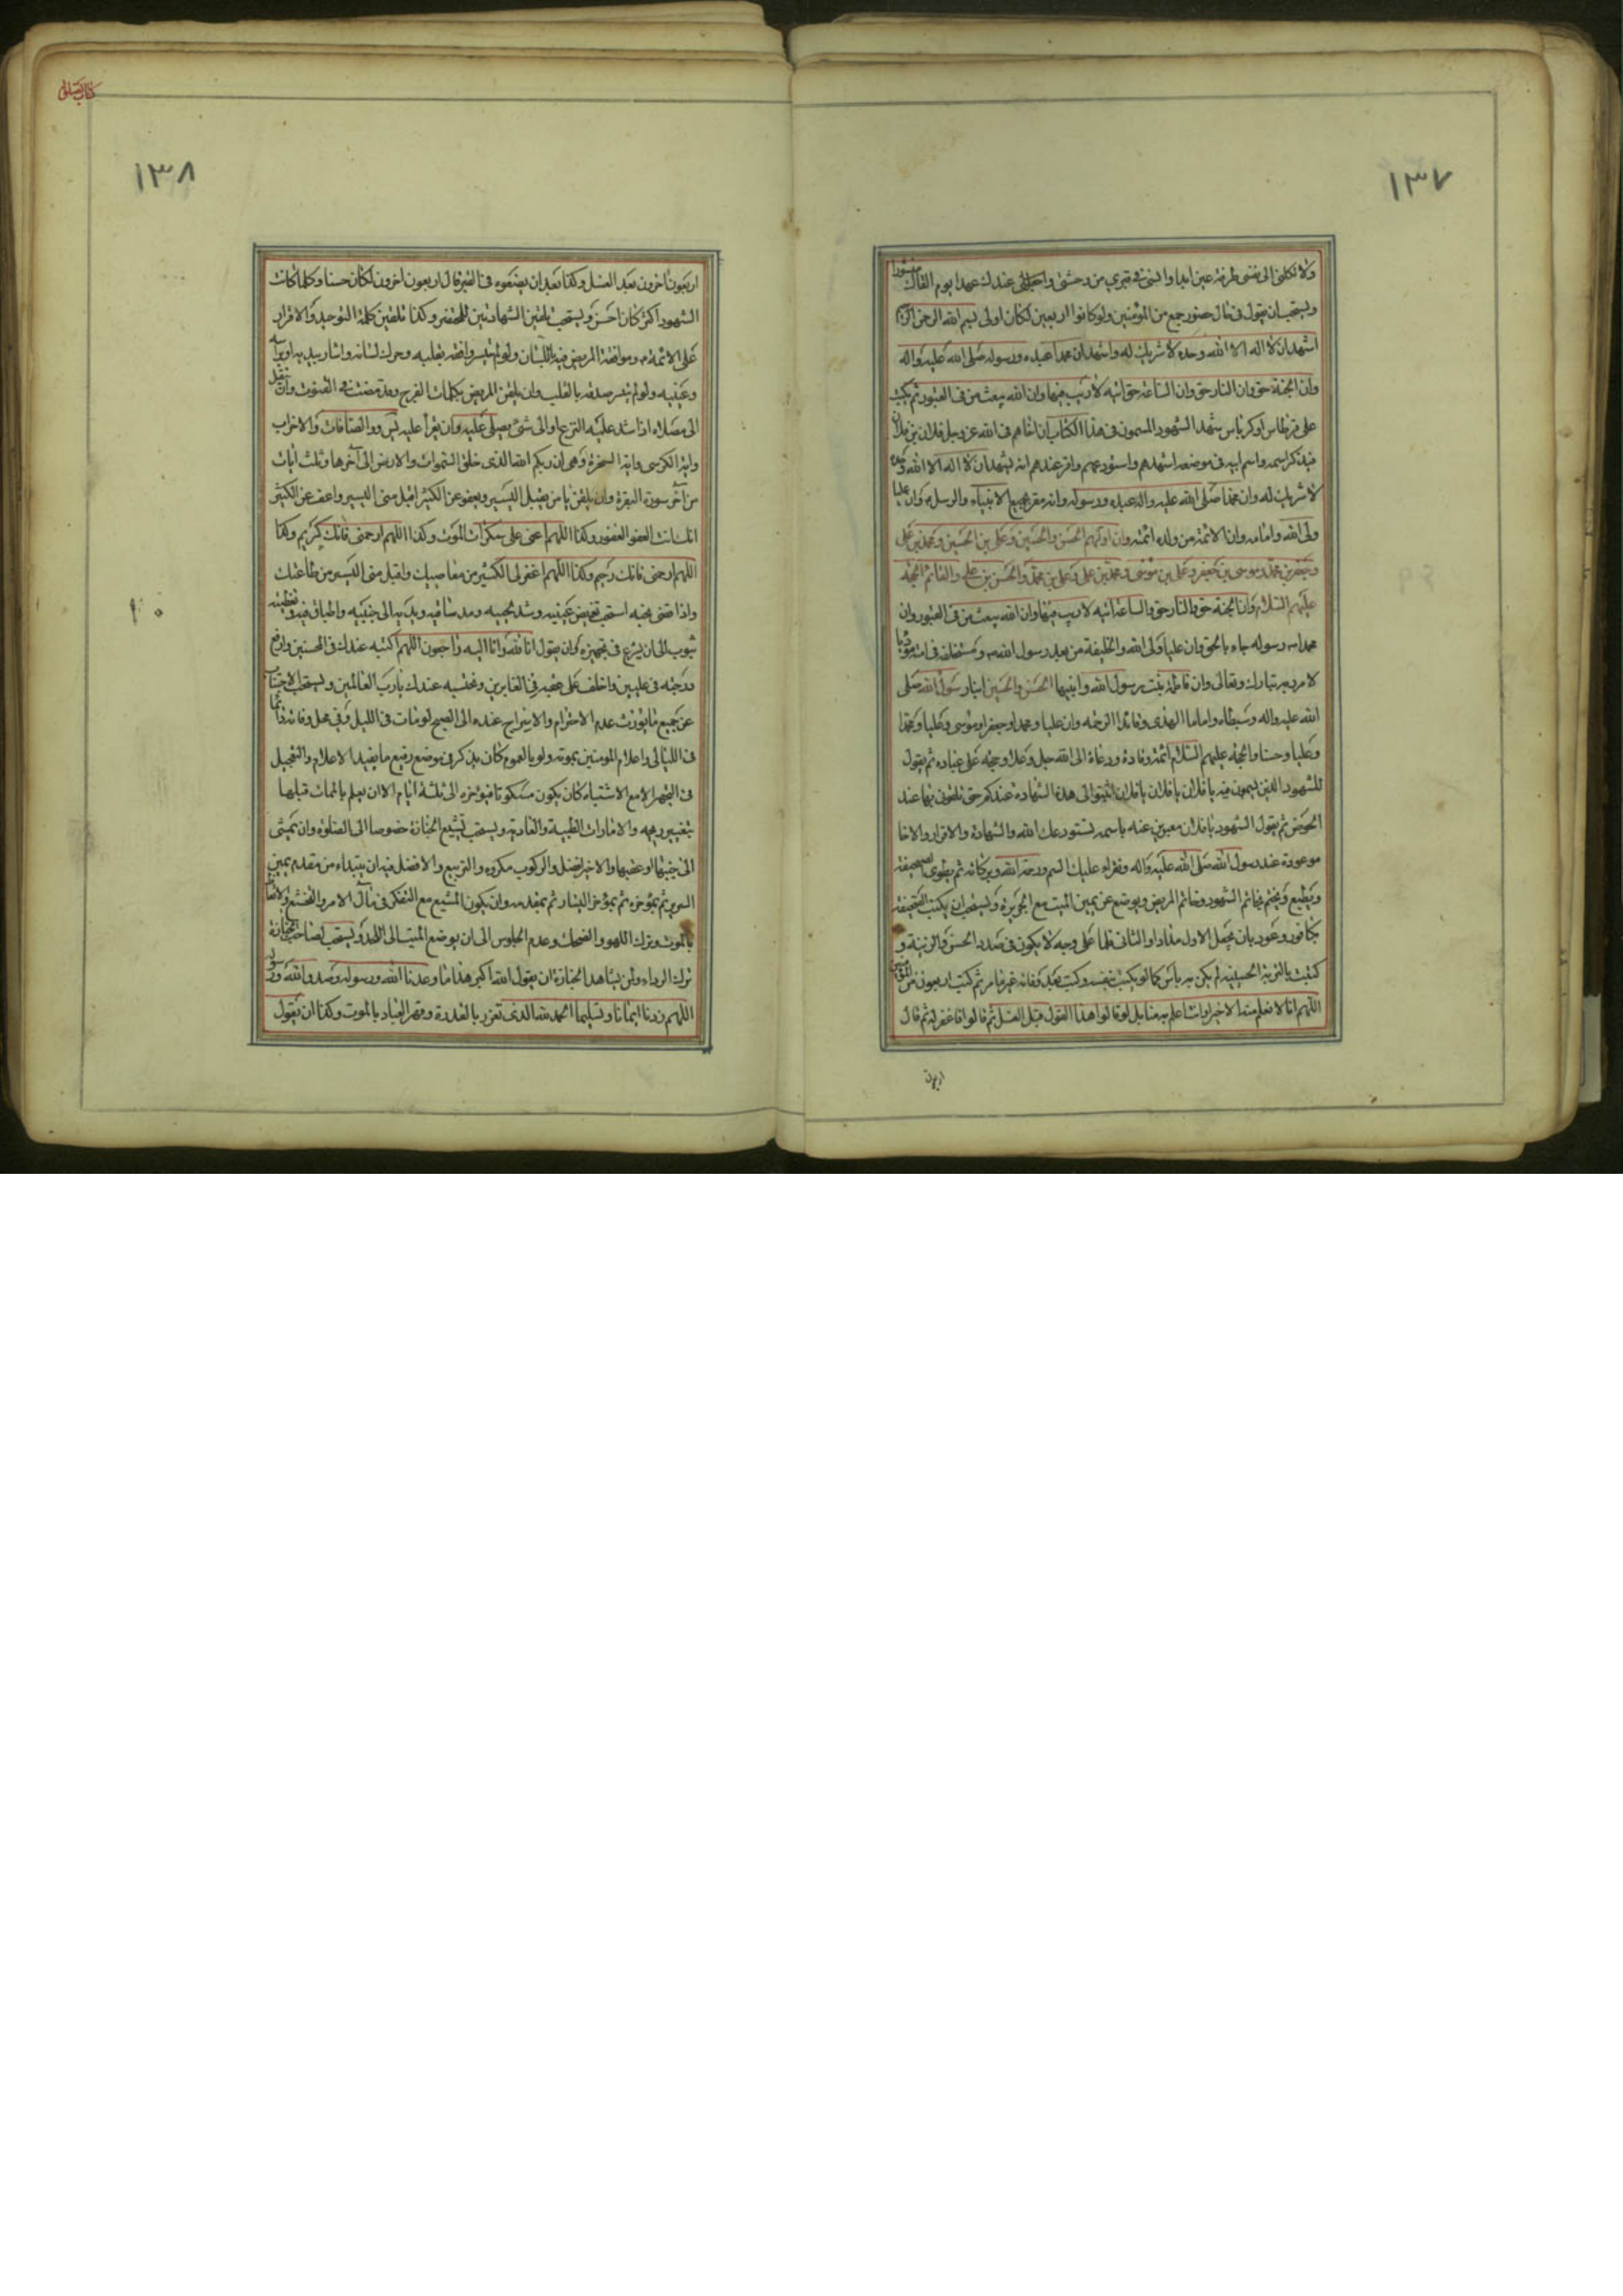 ١٣٧
ولا تكلني الى نفسي طرفة عين ابدا وانس في قبري من وحشتي واجعل لي عندك عهدا يوم القاك منشورا
ويستحب ان يقول في حال حضور جمع من المؤمنين ولو كانوا اربعين لكان اولى بسم الله الرحمن الرحيم
اشهد ان لا اله الا الله وحده لا شريك له واشهد ان محمدا عبده ورسوله صلى الله عليه واله
وان الجنة حق وان النار حق وان الساعة حق اتيه لا ريب فيها وان الله يبعث من في القبور ثم يكتب
على قرطاس او كرباس شهد الشهود المسمون في هذا الكتاب ان اخاهم في الله عز وجل فلان بن فلان
فيذكر اسمه واسم ابيه في موضعه اشهدهم واستودعهم واقر عندهم انه يشهد ان لا اله الا الله وحده
لا شريك له وان محمدا صلى الله عليه واله عبده ورسوله وانه مقر بجميع الانبياء والرسل وان عليا
ولي الله وامامه وان الائمة من ولده ائمته وان اولهم الحسن والحسين وعلي بن الحسين ومحمد بن علي
وجعفر بن محمد وموسى بن جعفر وعلي بن موسى ومحمد بن علي وعلي بن محمد والحسن بن علي والقائم الحجة
عليهم السلام وان الجنة حق والنار حق والساعة اتيه لا ريب فيها وان الله يبعث من في القبور وان
محمدا رسوله جاء بالحق وان عليا ولي الله والخليفة من بعد رسول الله ومستخلفه في امته مؤديا
لامر ربه تبارك وتعالى وان فاطمة بنت رسول الله وابنيها الحسن والحسين ابنا رسول الله صلى
الله عليه واله وسبطاه واماما الهدى وقائدا الرحمه وان عليا ومحمدا وجعفرا وموسى وعليا ومحمدا
وعليا وحسنا والحجة عليهم السلام ائمة وقادة ودعاة الى الله جل وعلا وحجة على عباده ثم يقول
للشهود الذين يسمون فيه يا فلان يا فلان يا فلان اثبتوا لي هذه الشهادة عندكم حتى تلقوني بها عند
الحوض ثم يقول الشهود يا فلان معبرين عنه باسمه نستودعك الله والشهادة والاقرار والاخا
موعودة عند رسول الله صلى الله عليه واله ونقراء عليك السم ورحمة الله وبركاته ثم يطوى الصحيفة
ويطبع ويختم بخاتم الشهود وخاتم المريض ويوضع عن يمين الميت مع الجريدة ويستحب ان يكتب الصحيفة
بكافور وعود بان يجعل الاول مدادا والثاني قلما على وجه لا يكون في صدد الحسن والزينة و
كتبت بالتربة الحسينيه لم يكن به باس كما لو يكتب بنفسه وكتب قبل وفاته غير ما مر ثم كتب اربعون من المؤمنين
اللهم انا لا نعلم منه الا خيرا وانت اعلم به منا بل لو قالوا هذا القول قبل الغسل ثم قالوا فاغفر له ثم قال
اربعون
كتاب الصلوة
١٣٨
اربعون اخرون بعد الغسل وكذا بعد ان يضعوه في القبر قال اربعون اخرون لكان حسنا وكلما كانت
الشهود اكثر كان احسن ويستحب تلقين الشهادتين للمحتضر وكذا تلقين كلمة التوحيد والاقرار
على الائمة وموافقة المريض فيه باللسان ولو لم يتيسر وافقه بقلبه وحرك لسانه واشار بيديه او براسه
وعينيه ولو لم يتيسر صدقه بالقلب وان يلقن المريض بكلمات الفرج وقد مضت في القنوت وان ينقل
الى مصلاه اذا اشتد عليه النزع او الى شئ يصلي عليه وان يقرأ عليه يس ووالصافات والاحزاب
واية الكرسي واية السخرة وهي ان ربكم الله الذي خلق السموات والارض الى آخرها وثلث ايات
من آخر سورة البقرة وان يلقن يا من يقبل اليسير ويعفو عن الكثير اقبل مني اليسير واعف عن الكثير
انك انت العفو الغفور وكذا اللهم اعني على سكرات الموت وكذا اللهم ارحمني فانك كريم وكذا
اللهم ارحمني فانك رحيم وكذا اللهم اغفر لي الكثير من معاصيك واقبل مني اليسير من طاعتك
واذا قضى نحبه استحب تغميض عينيه وشد لحييه ومد ساقيه ويديه الى جنبيه واطباق فيه وتغطيته
بثوب الى ان يشرع في تجهيزه وان يقول انا لله وانا اليه راجعون اللهم اكتبه عندك في المحسنين وارفع
درجته في عليين واخلف على عقبه في الغابرين ونحتسبه عندك يا رب العالمين ويستحب الاجتناب
عن جميع ما يورث عدم الاحترام والاسراج عنده الى الصبح لو مات في الليل وفي محل وفاته دائما
في الليالي واعلام المومنين بموته ولو بالعموم كان يذكر في موضع رفيع ما يفيد الاعلام والتعجيل
في التجهيز الا مع الاشتباه كان يكون مسكوتا فيؤخره الى ثلثة ايام الا ان يعلم بالممات قبلها
بتغيير ريحه والامارات الطبية والعادية ويستحب تشييع الجنازة خصوصا الى الصلوة وان يمشي
الى جنبها او عقبها والاخير افضل والركوب مكروه والتربيع والافضل فيه ان يبتداء من مقدم يمين
السرير ثم بمؤخره ثم بمؤخر اليسار ثم بمقدمه وان يكون المشيع مع التفكر في مآل الامر والتخشع والاتعاظ
بالموت وترك اللهو والضحك وعدم الجلوس الى ان يوضع الميت الى اللحد ويستحب لصاحب الجنازة
ترك الرداء ولمن يشاهد الجنازة ان يقول الله اكبر هذا ما وعدنا الله ورسوله وصدق الله ورسوله
اللهم زدنا ايمانا وتسليما الحمد لله الذي تعزز بالقدرة وقهر العباد بالموت وكذا ان يقول